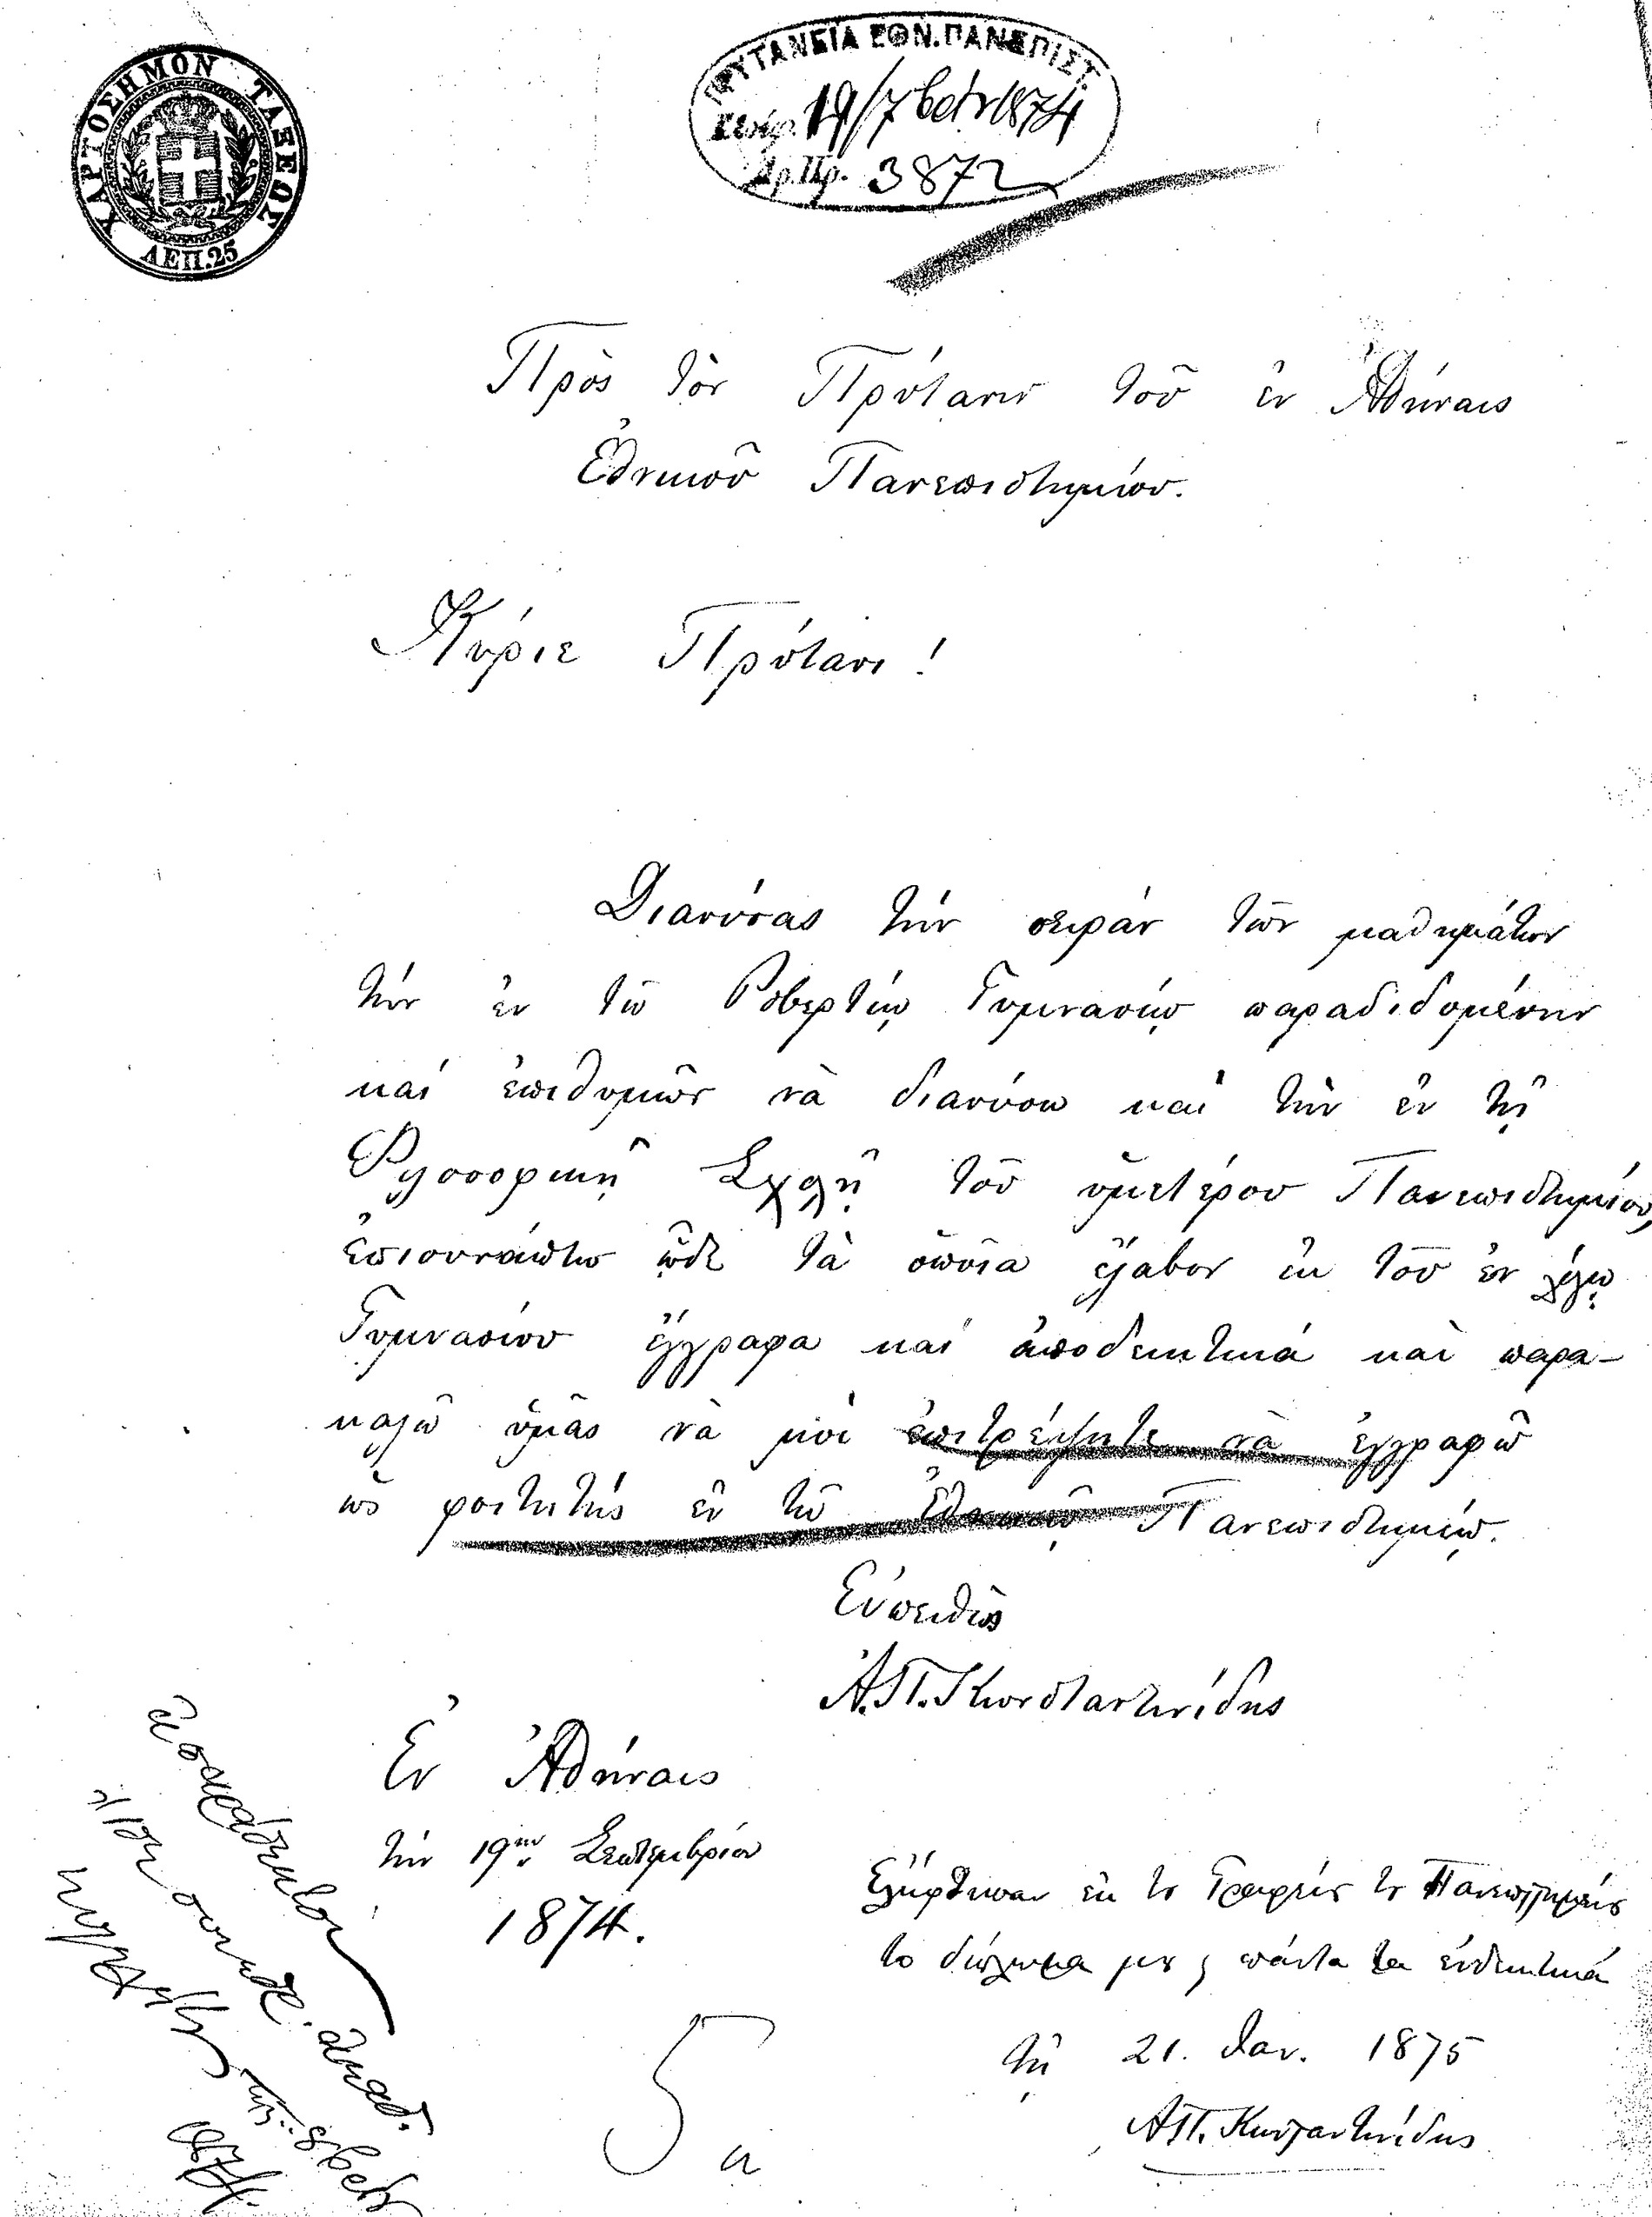 ΧΑΡΤΟΣΗΜΟΝ ΤΑΞΕΩΣ
ΛΕΠ.25
ΠΡΥΤΑΝΕΙΑ ΕΘΝ.ΠΑΝΕΠΙΣΤ.
19/7βρ 1874
Ἀρ.Πρ. 3872
Πρὸς τὸν Πρύτανιν τοῦ ἐν Ἀθήναις
Ἐθνικοῦ Πανεπιστημίου.
Κύριε Πρύτανι!
Διανύσας τήν σειράν τῶν μαθημάτων
τήν ἐν τῷ Ροβερτίῳ Γυμνασίῳ παραδιδομένην
καί ἐπιθυμῶν νὰ διανύσω καὶ τὴν ἐν τῇ
Φιλοσοφικῇ Σχολῇ τοῦ ὑμετέρου Πανεπιστημίου,
ἐπισυνάπτω ὧδε τὰ ὁποῖα ἔλαβον ἐκ τοῦ ἐν λόγῳ
Γυμνασίου ἔγγραφα καί ἀποδεικτικά καὶ παρα-
καλῶ ὑμᾶς νὰ μοί ἐπιτρέψητε νὰ ἐγγραφῶ
ὡς φοιτητής ἐν τῷ Ἐθνικῷ Πανεπιστημίῳ.
Εὐπειθὴς
Ἀ.Π.Κωνσταντινίδης
Ἐν Ἀθήναις
τήν 19ην Σεπτεμβρίου
1874.
Ἐλήφθησαν ἐκ τ Γραφείς τ Πανεπιστημείς
το δίπλωμα μου ϗ πάντα τα ἐνδεικτικά
τῇ 21. Ἰαν. 1875
ΑΠ. Κωνσταντινίδης
5 α
1874.